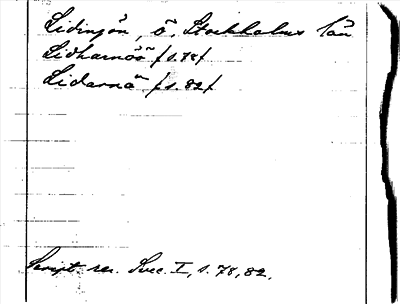 Lidingön, ö, Stockholms län
Lidharnöö /s.78/
Lidarnö /s.82/
Script. rer. Svec. I, s. 78, 82.